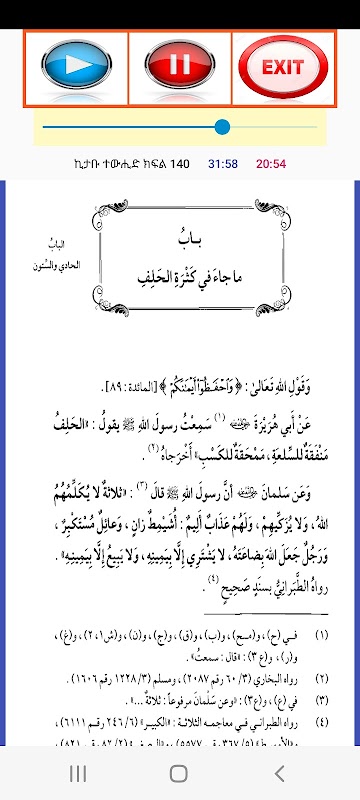 EXIT
ኪታቡ ተውሒድ ክፍል 140 31:58 20:54
البابُ
الحادي والسِّتون
بابُ
ما جاءَ في كَثْرَةِ الحَلِفِ
وَقَوْلِ اللهِ تَعَالىٰ: ﴿وَٱحۡفَظُوٓاْ أَيۡمَٰنَكُمۡ﴾ [المائدة: ٨٩].
عَنْ أَبي هُرَيْرَةَ رضي الله عنه (١) سَمِعْتُ رسولَ اللهِ ﷺ يقولُ: «الحَلِفُ
مَنْفَقَةٌ للسِّلعَةِ، مَمْحَقَةٌ للكَسْبِ» أَخْرَجَاهُ(٢).
وَعَن سَلمانَ رضي الله عنه أنَّ رسولَ اللهِ ﷺ قالَ(٣): «ثلاثةٌ لا يُكَلِّمُهُمُ
اللهُ، ولَا يُزَكِّيهِمْ، وَلَهُمْ عَذَابٌ أَلِيمٌ: أُشَيْمِطٌ زانٍ، وَعائِلٌ مُسْتَكْبِرٌ،
وَرَجُلٌ جَعَلَ اللهَ بِضَاعَتَهُ، لا يَشْتَرِي إلَّا بِيَمِينِهِ، وَلَا يَبِيعُ إلَّا بِيَمِينِهِ».
رواهُ الطَّبَرانِيُّ بسنَدٍ صَحِيحٍ(٤).
(١) فـي (ح)، و(مـح)، و(ب)، و(ق)، و(ج)، و(ن)، و(ش١، ٢)، و(غ)،
و(ر)، و(ع ٣): «قال: سمعتُ».
(٢) رواه البخاري (٣/ ٦٠ رقم ٢٠٨٧)، ومسلم (٣/ ١٢٢٨ رقم ١٦٠٦).
(٣) في (ع)، و(ع٣): «وعن سَلْمانَ مرفوعاً: ثلاثةٌ ...».
(٤) رواه الطبراني في معاجمه الثلاثة: «الكبير» (٦/ ٢٤٦ رقم ٦١١١)،